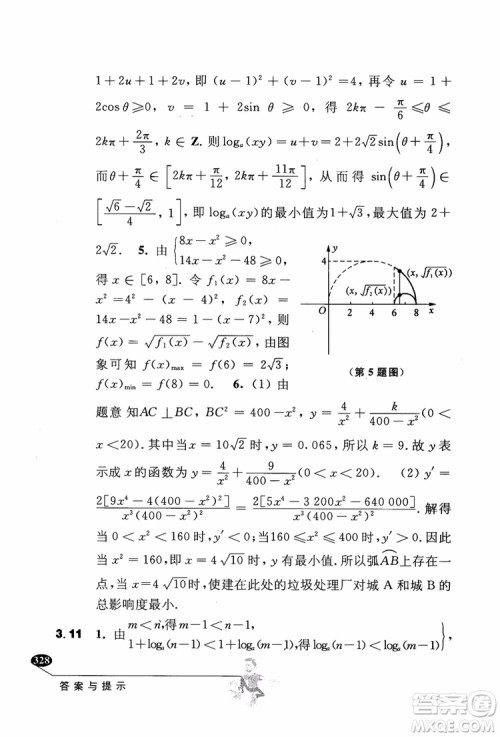 1+2u+1+2v,即(u-1)²+(v-1)²=4,再令 u=1+
2cos θ≥0, v=1+2sin θ≥0,得 2kπ-π/6≤θ≤
2kπ+2π/3, k∈Z.则logₐ(xy)=u+v=2+2√2sin(θ+π/4),
而θ+π/4∈[2kπ+π/12, 2kπ+11π/12],可得 sin(θ+π/4)∈
[(√6-√2)/4, 1],即得 logₐ(xy)的最小值为1+√3,最大值为2+
2√2. 5. 由{8x-x²≥0, 14x-x²-48≥0}
得得 x∈[6, 8].令 f₁(x)
x²=4²-(x-4)², f₂(x)=
14x-x²-48=1-(x-7)²,
f(x)=√f₁(x)-√f₂(x),由图
象可知 f(x)max=f(6)=2√3;
f(x)min=f(8)=0. 6. (1) 由
y
4
(x, √f₁(x))
(x, √f₂(x))
O 2 4 6 7 8 x
(第5题图)
题意知AC⊥BC, BC²=400-x², y=4/x²+k/(400-x²)(0<x
<20).其中当x=10√2时, y=0.065,所以k=9.所以y表
示成x的函数为 y=4/x²+9/(400-x²)(0<x<20). (2) y′=
2[9x⁴-4(400-x²)²]/x³(400-x²)²=2[5x⁴-3 200x²-640 000]/x³(400-x²)².解得
当0<x²<160时, y′<0,当160≤x²≤400时, y′>0.所以
当x²=160时, y有最小值.所以弧AB上存在
一点,当x=4√10时,使建在此处的垃圾处理厂对城A和城B的
总影响度最小.
3.11 1. 由{m<n, 1+logₐ(n-1)<1+logₐ(m-1)},得{m<n, logₐ(n-1)<logₐ(m-1)},
328
答案与提示